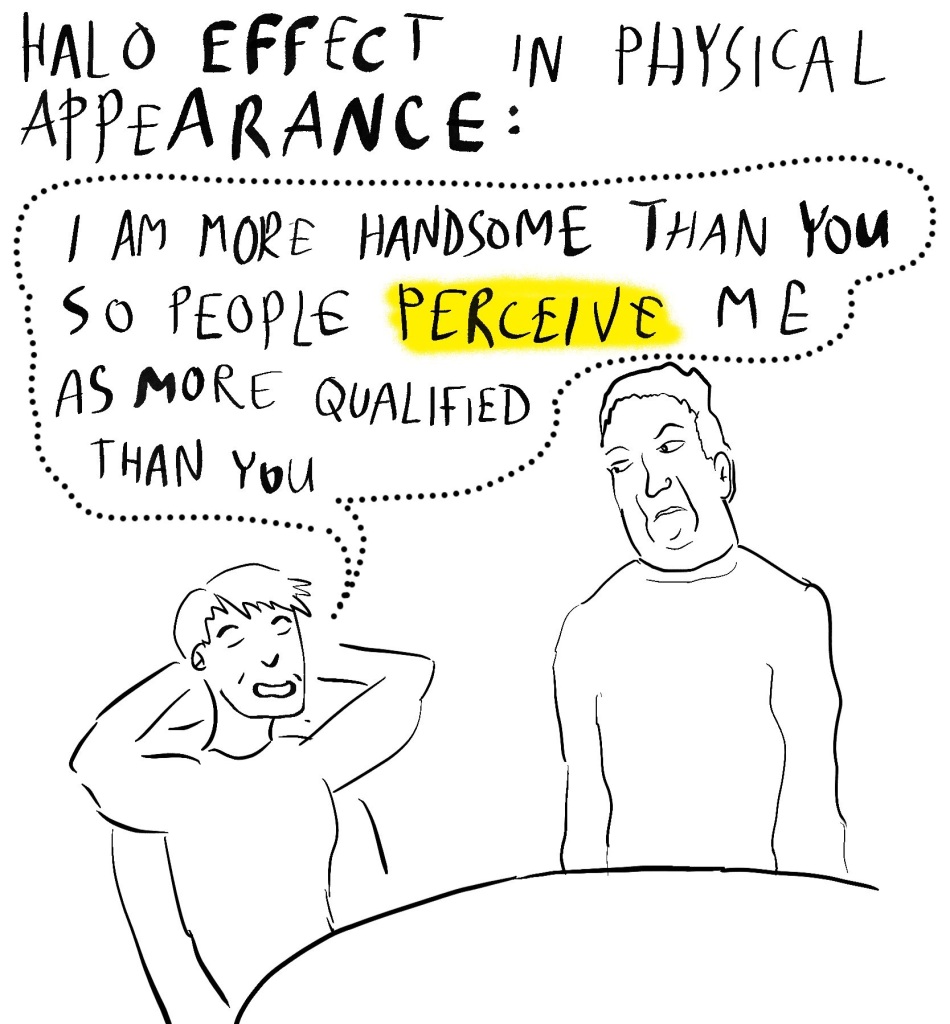 HALO EFFECT IN PHYSICAL
APPEARANCE:
I AM MORE HANDSOME THAN YOU
SO PEOPLE PERCEIVE ME
AS MORE QUALIFIED
THAN YOU